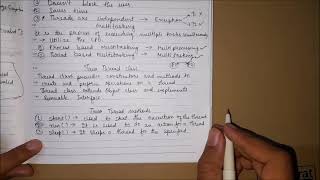 ② Doesn't block the user
② Saves time
③ Threads are independent → Exception
It is the process of executing multiple tasks simultaneously
→ Utilize the CPU.
① Process based multitasking → Multiprocessing
② Thread based multitasking → Multithreading
Java Thread class
Thread class provides constructors and methods to
create and perform operations on a thread
Thread class extends Object class and implements
Runnable Interface
Java Thread methods
① start() → used to start the execution of the thread
② run() → It is used to do an action for a thread
③ sleep() → It sleeps a thread for the specified